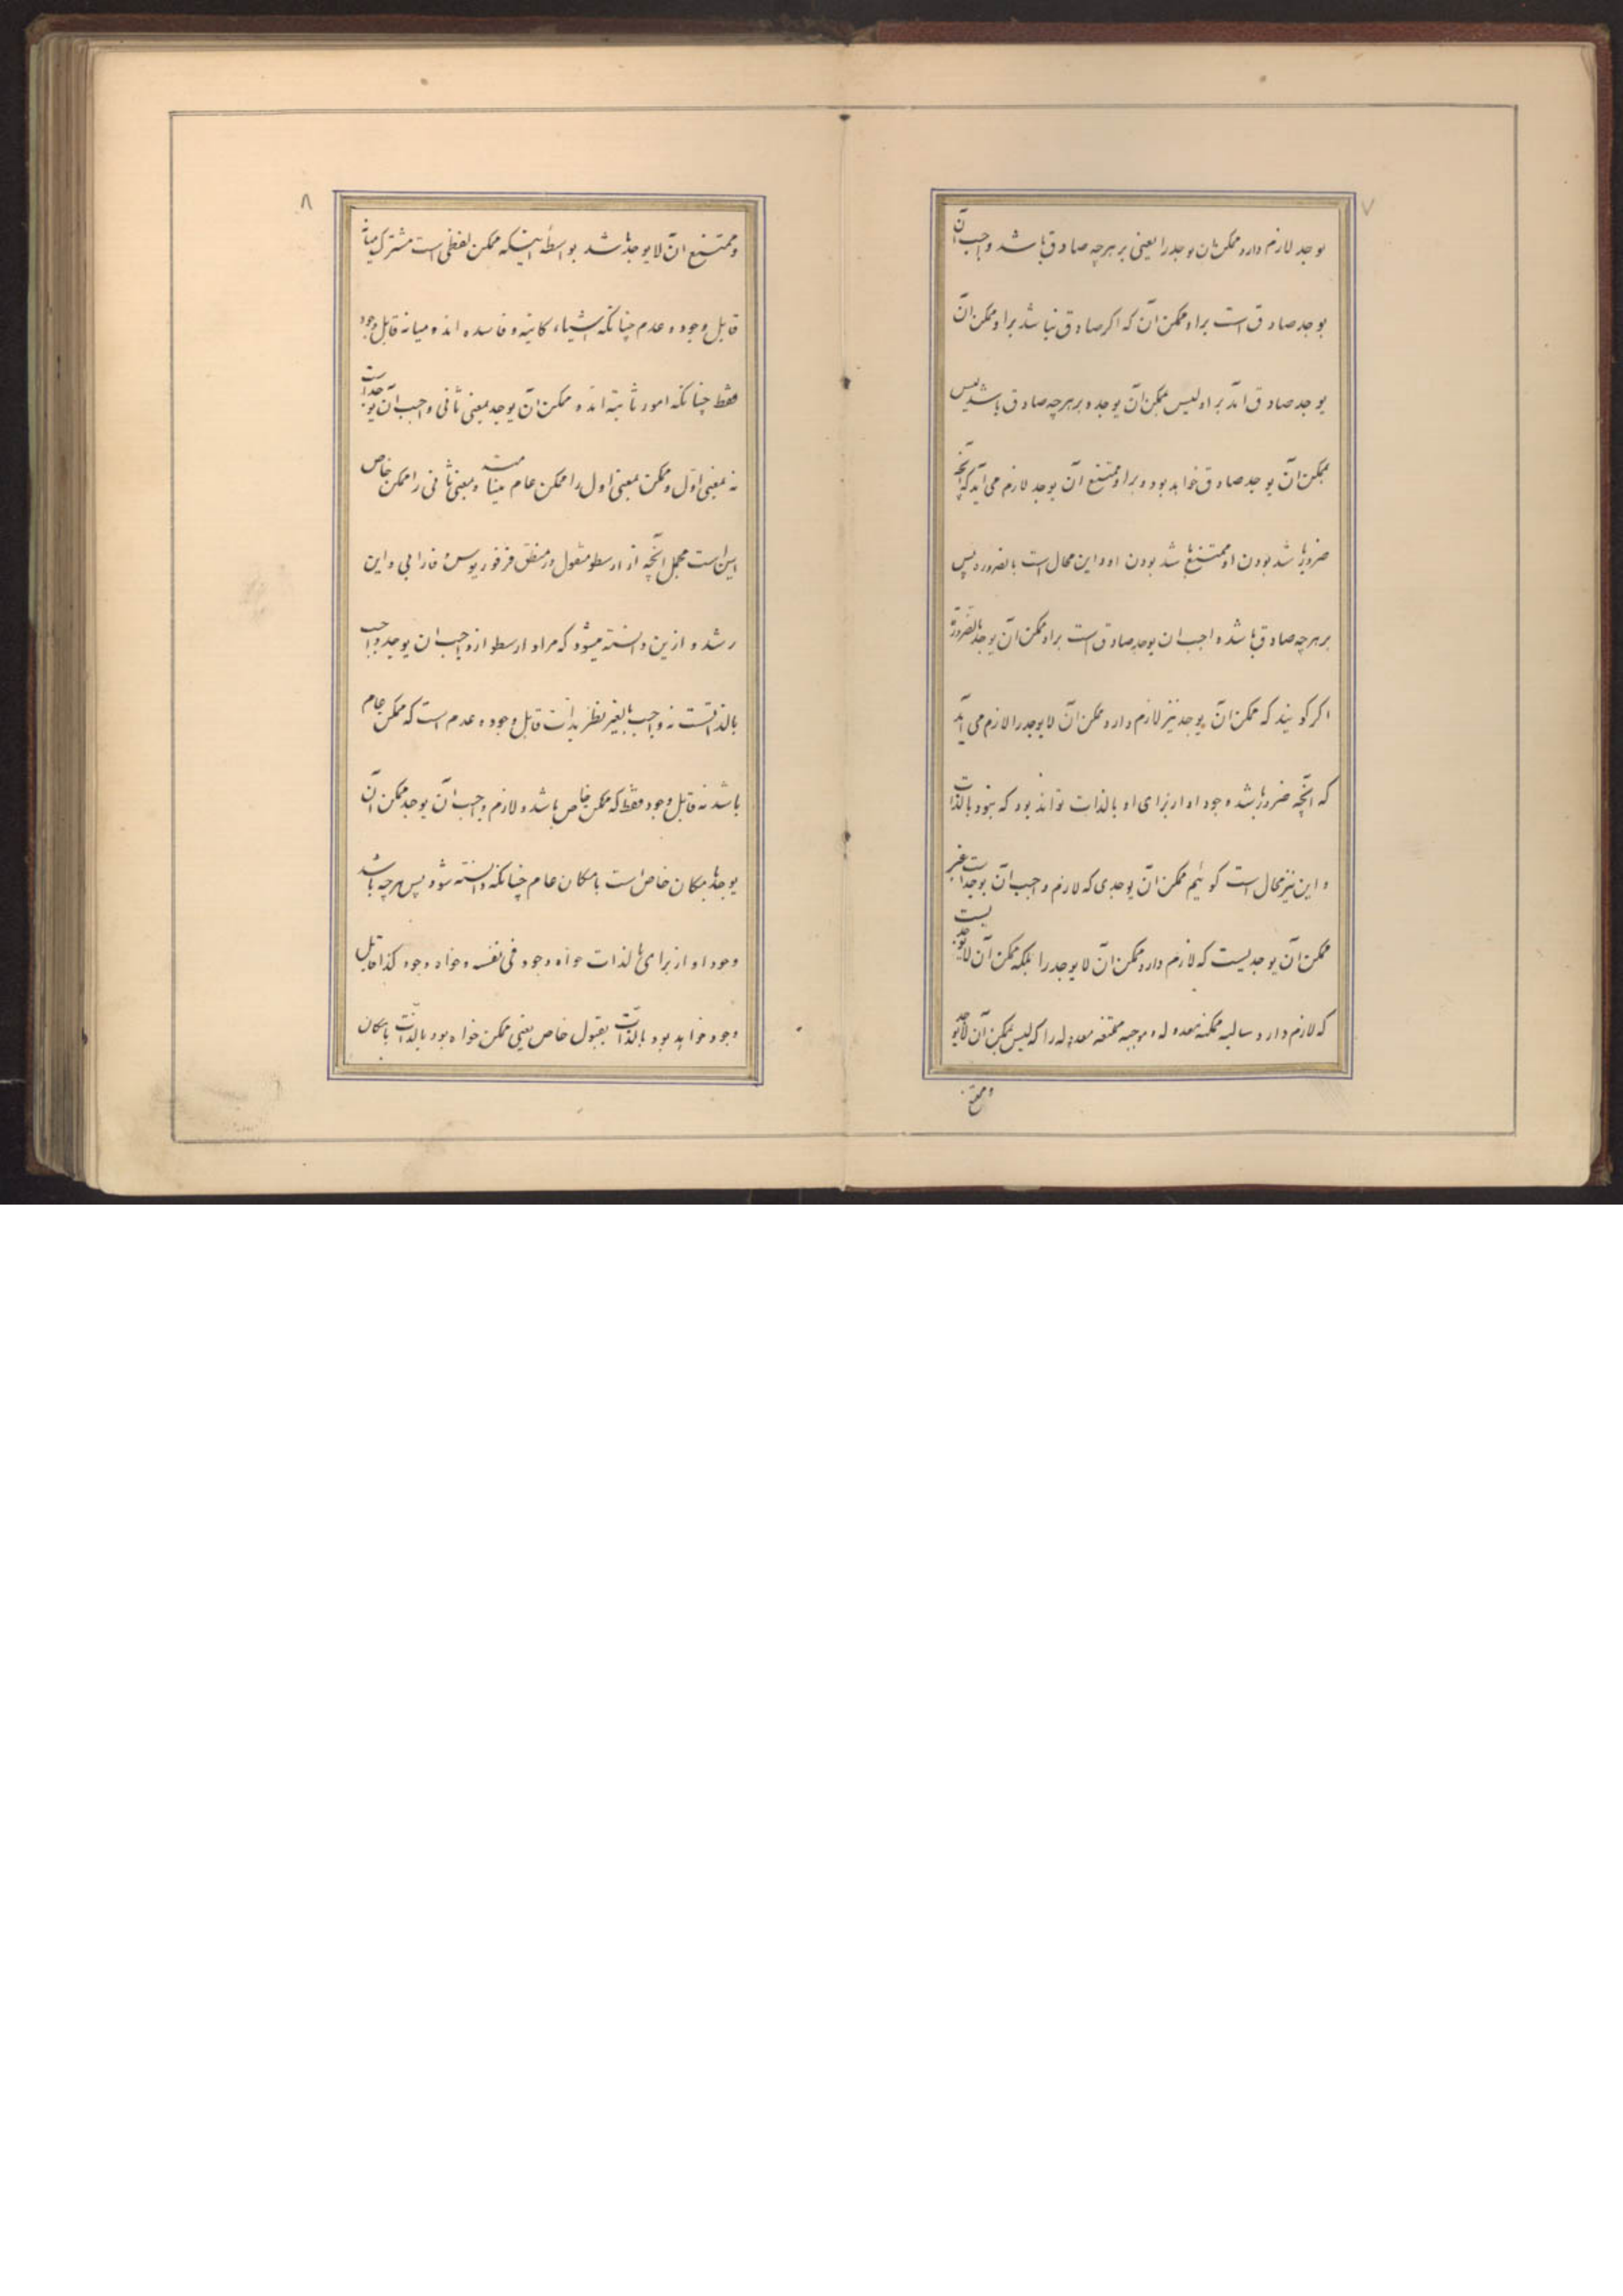 ۷
یوجد لازم دارد ممکن ان یوجد را یعنی بر هر چه صادق باشد واجب آن
یوجد صادق است براو ممکن آن که اکر صادق نباشد براو ممکن آن
یوجد صادق آید براو لیس بممکن آن یوجد و بر هر چه صادق باشد لیس
بممکن آن یوجد صادق خواهد بود و براو ممتنع آن یوجد لازم می آید که آنچه
ضرور باشد بودن او ممتنع باشد بودن او و این محال است بالضروره پس
بر هر چه صادق باشد واجب ان یوجد صادق است براو ممکن آن یوجد بالضرورة
اکر کویند که ممکن آن یوجد نیز لازم دارد ممکن آن لا یوجد را لازم می آید
که آنچه ضرور باشد وجود او از برای او بالذات تواند بود که نبود بالذات
و این نیز محال است کوئیم ممکن آن یوجدی که لازم واجب آن یوجد است غیر
ممکن آن یوجدیست که لازم دارد ممکن آن لا یوجد را بلکه ممکن آن لا یوجدیست
که لازم دارد سالبه ممکنه معدوله و موجبه ممتنعه معدوله را که لیس بممکن آن لا یوجد
و ممتنع
۸
و ممتنع آن لا یوجد باشد بواسطهٔ اینکه ممکن لفظی است مشترک میانه
قابل وجود و عدم چنانکه اشیاء کاینه و فاسده اند و میانه قابل وجود
فقط چنانکه امور ثابته اند و ممکن آن یوجد بمعنی ثانی واجب آن یوجد است
نه بمعنی اوّل و ممکن بمعنی اول را ممکن عام مینامند و بمعنی ثانی را ممکن خاص
این است مجمل آنچه از ارسطو منقول در منطق فرفوریوس و فارابی و ابن
رشد و ازین دانسته میشود که مراد ارسطو از واجب ان یوجد واجب
بالذاتست نه واجب بالغیر نظر بذات قابل وجود و عدم است که ممکن عام
باشد نه قابل وجود فقط که ممکن خاص باشد و لازم واجب آن یوجد ممکن آن
یوجد بامکان خاص است بامکان عام چنانکه دانسته شود پس هر چه باشد
وجود او از برای بالذات خواه وجود فی نفسه و خواه وجود کذا قابل
وجود خواهد بود بالذات بقبول خاص یعنی ممکن خواه بود بالذات بامکان